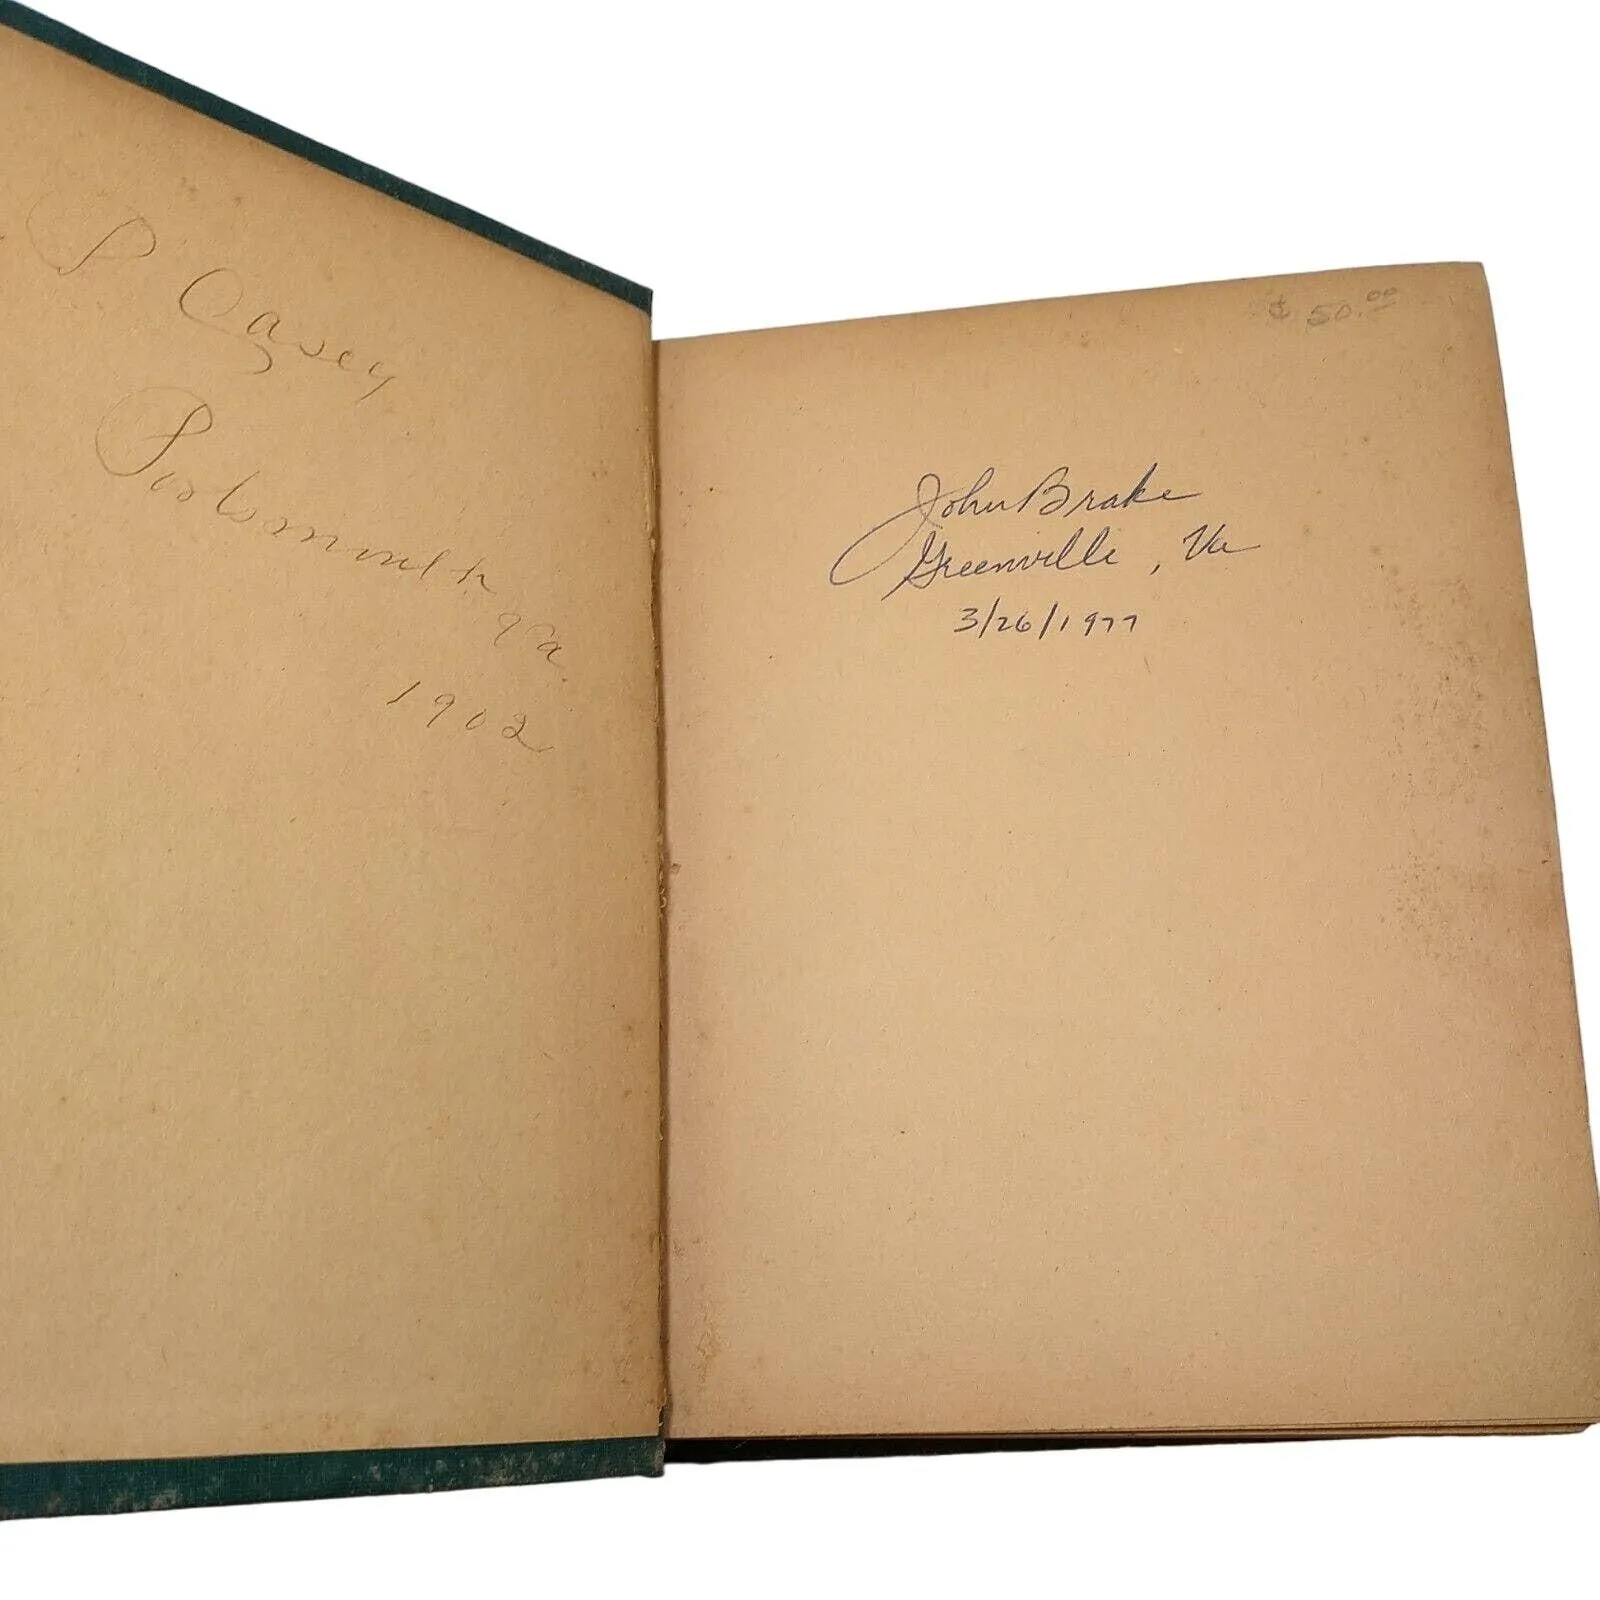 P Casey
Portsmouth
Va.
1902
$ 50.00
John Brake
Greenville, Va
3/26/1977